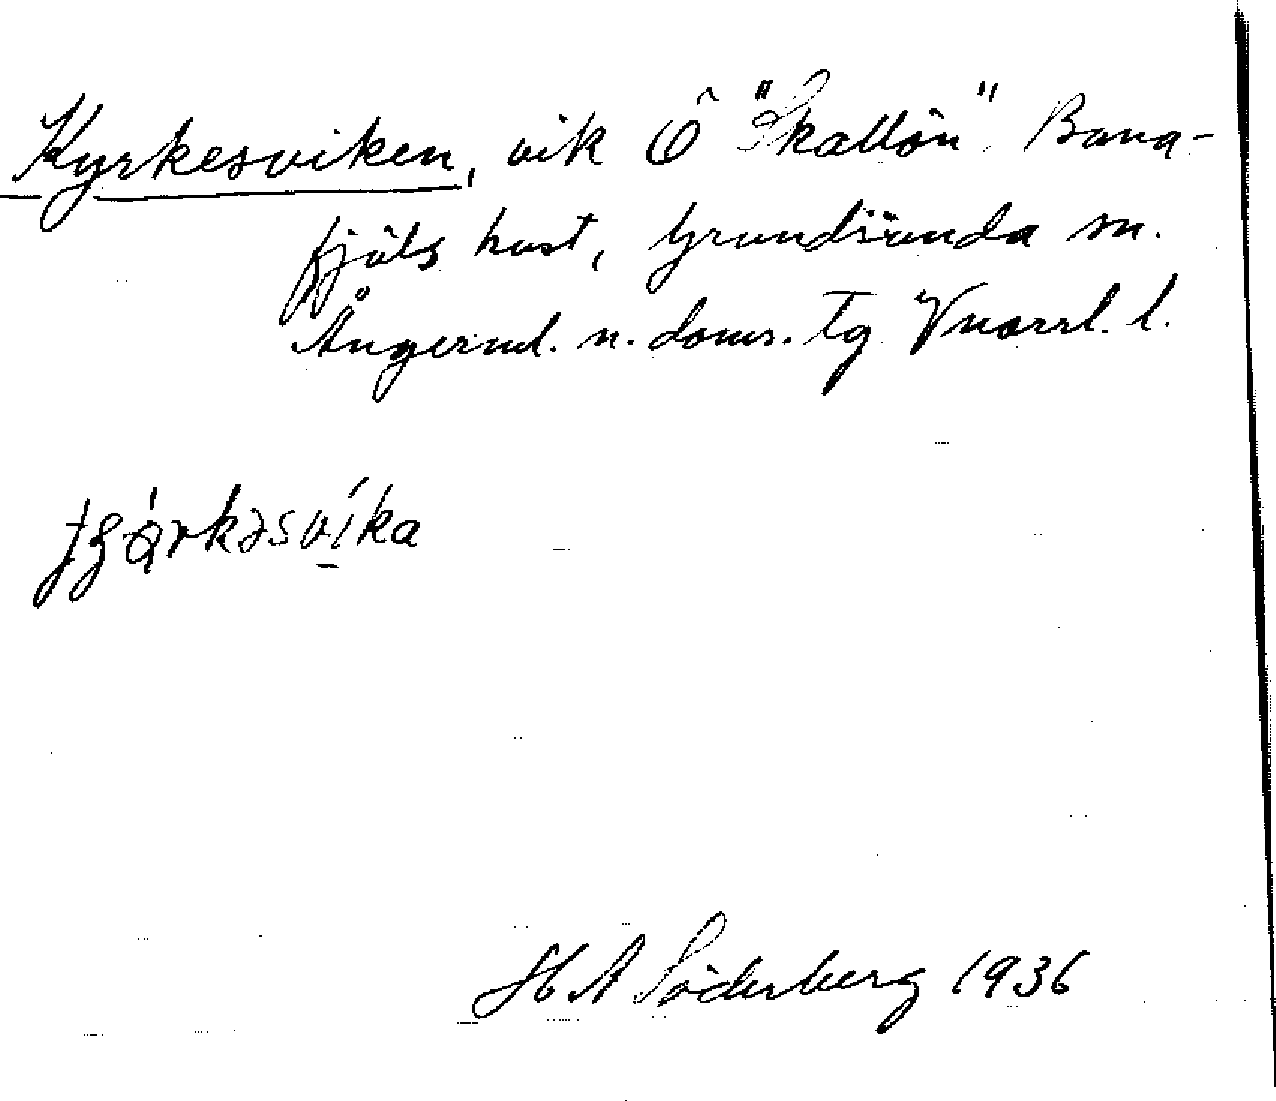 Kyrkesviken, vik Ö "Skallön" Bana-
fjäls kust, Grundsunda sn.
Ångerml. n. doms. Tg Vnorrl. l.
H A Söderberg 1936